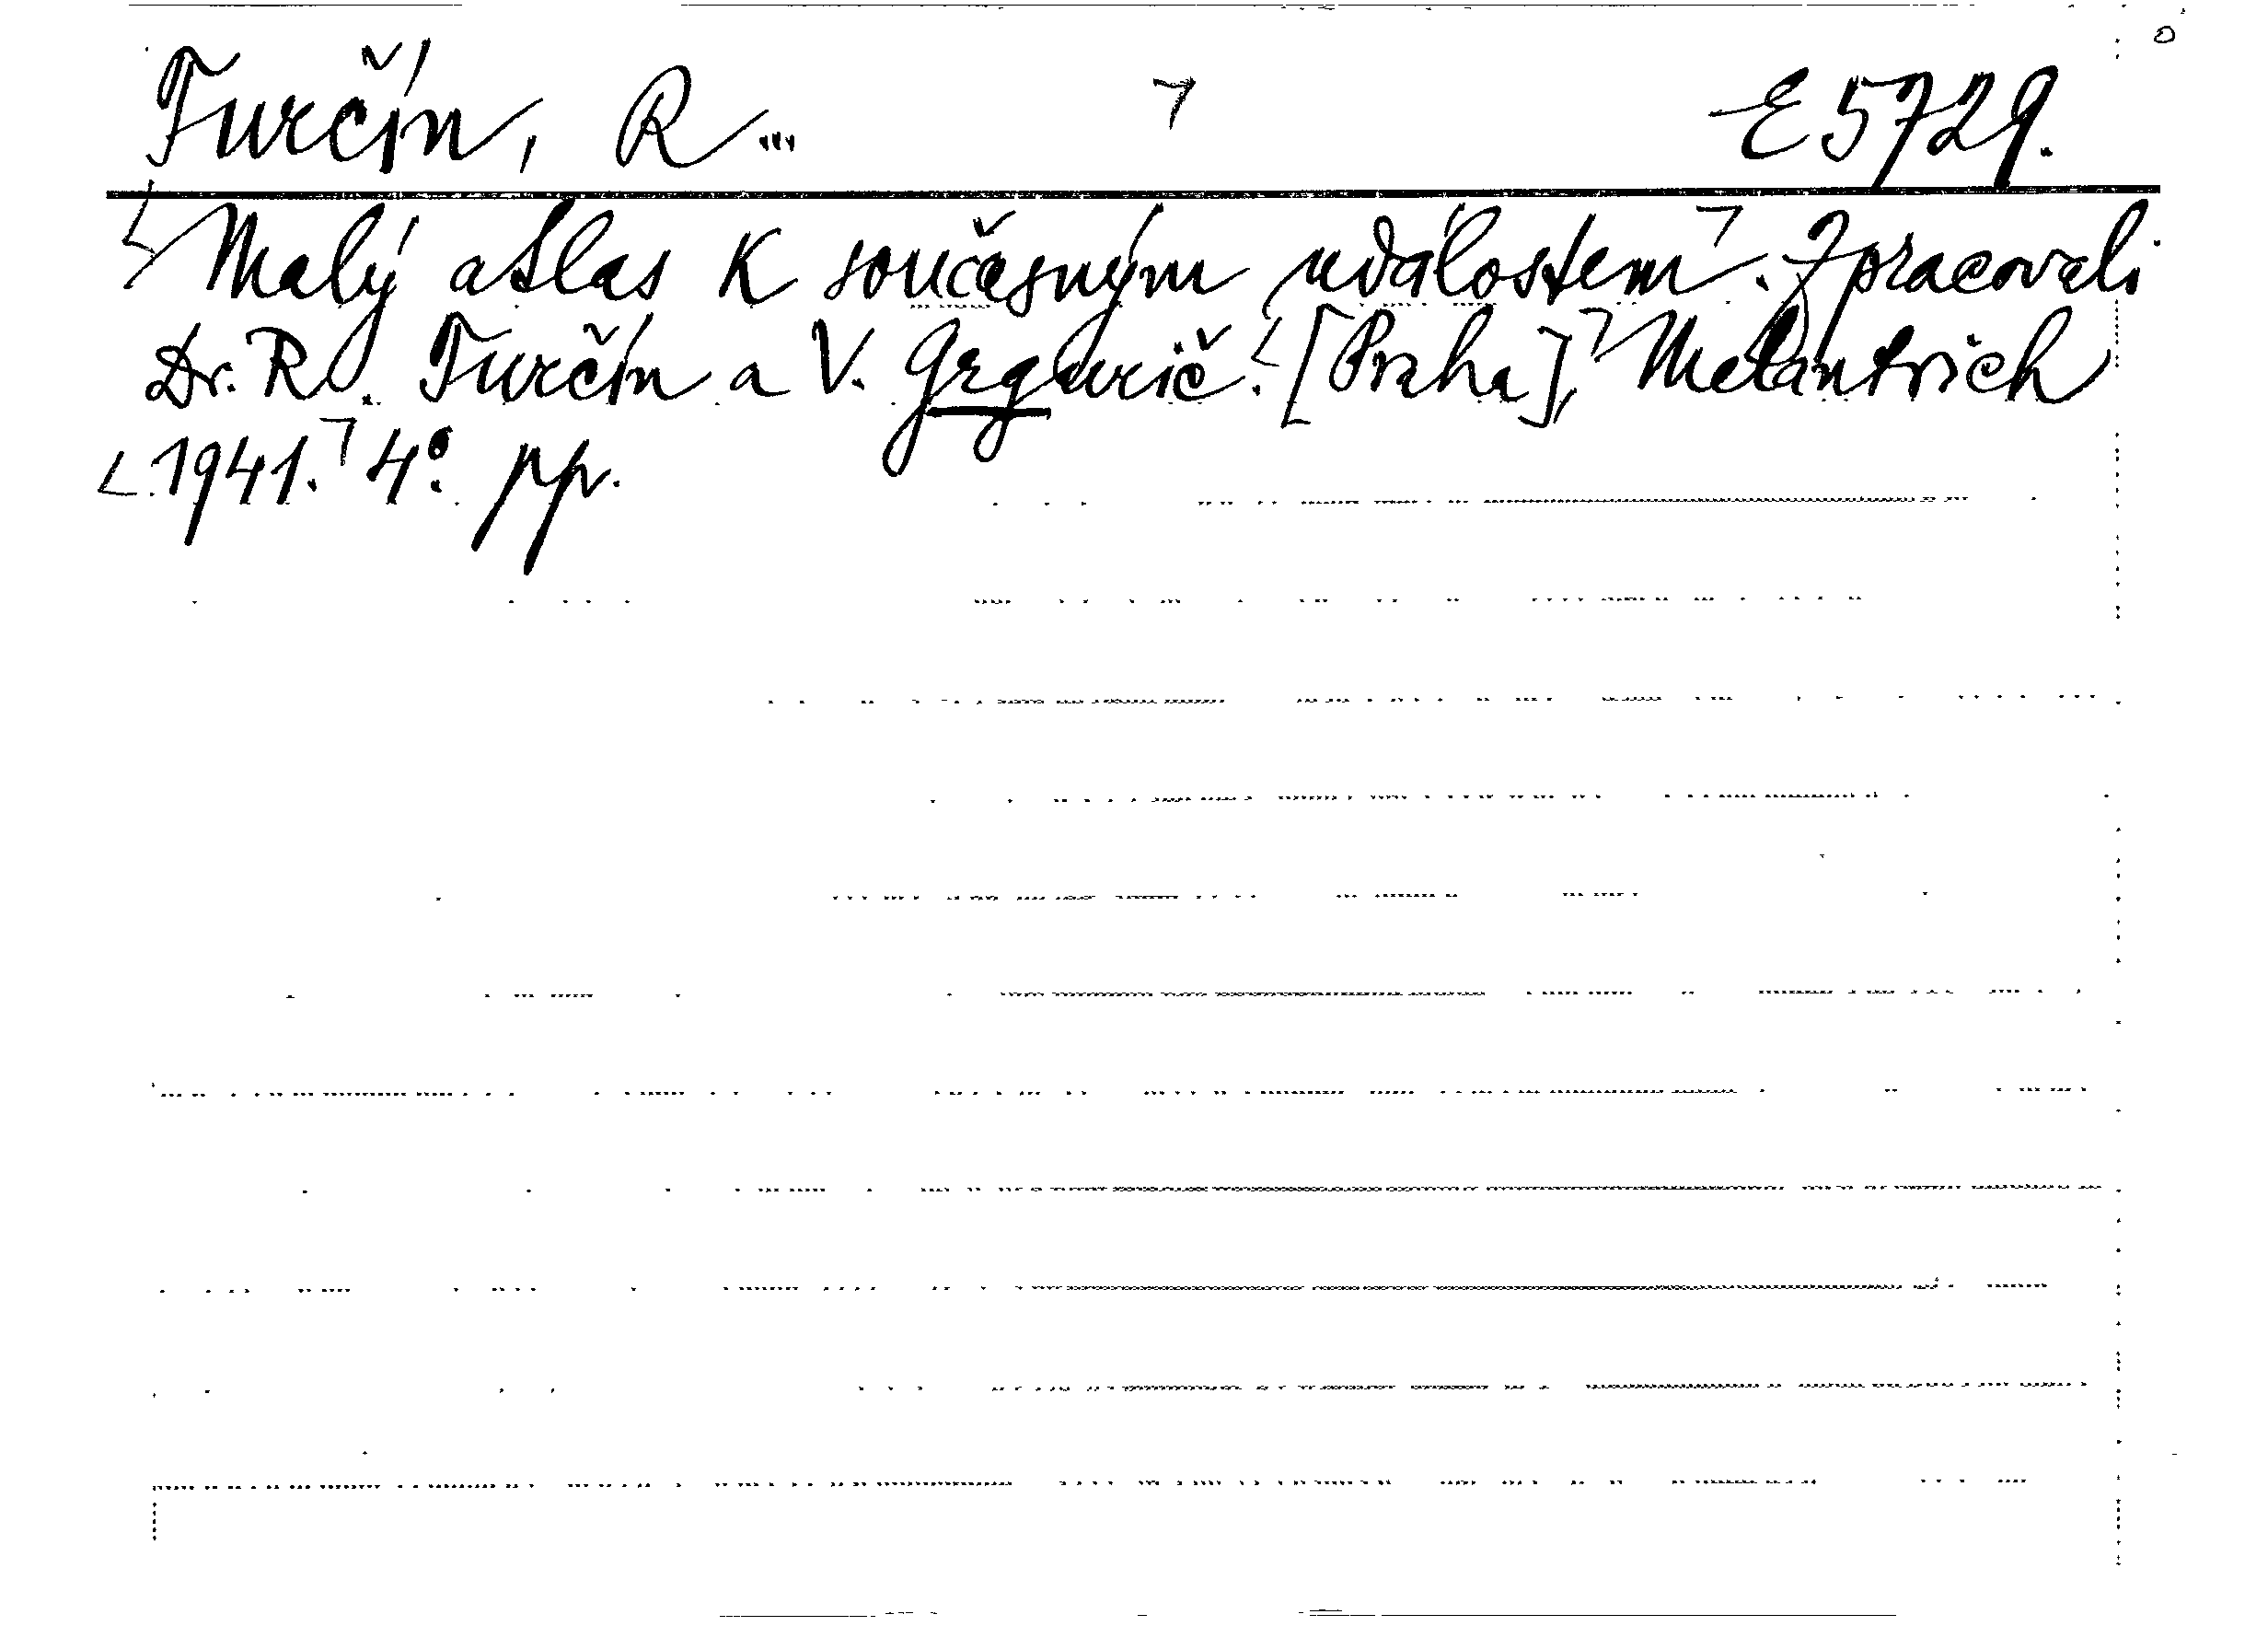 Turčín, R... E 5729.
Malý atlas k současným událostem. Zpracovali
Dr. R. Turčín a V. Grgurič. [Praha], Melantrich
1941. 4°. pp.